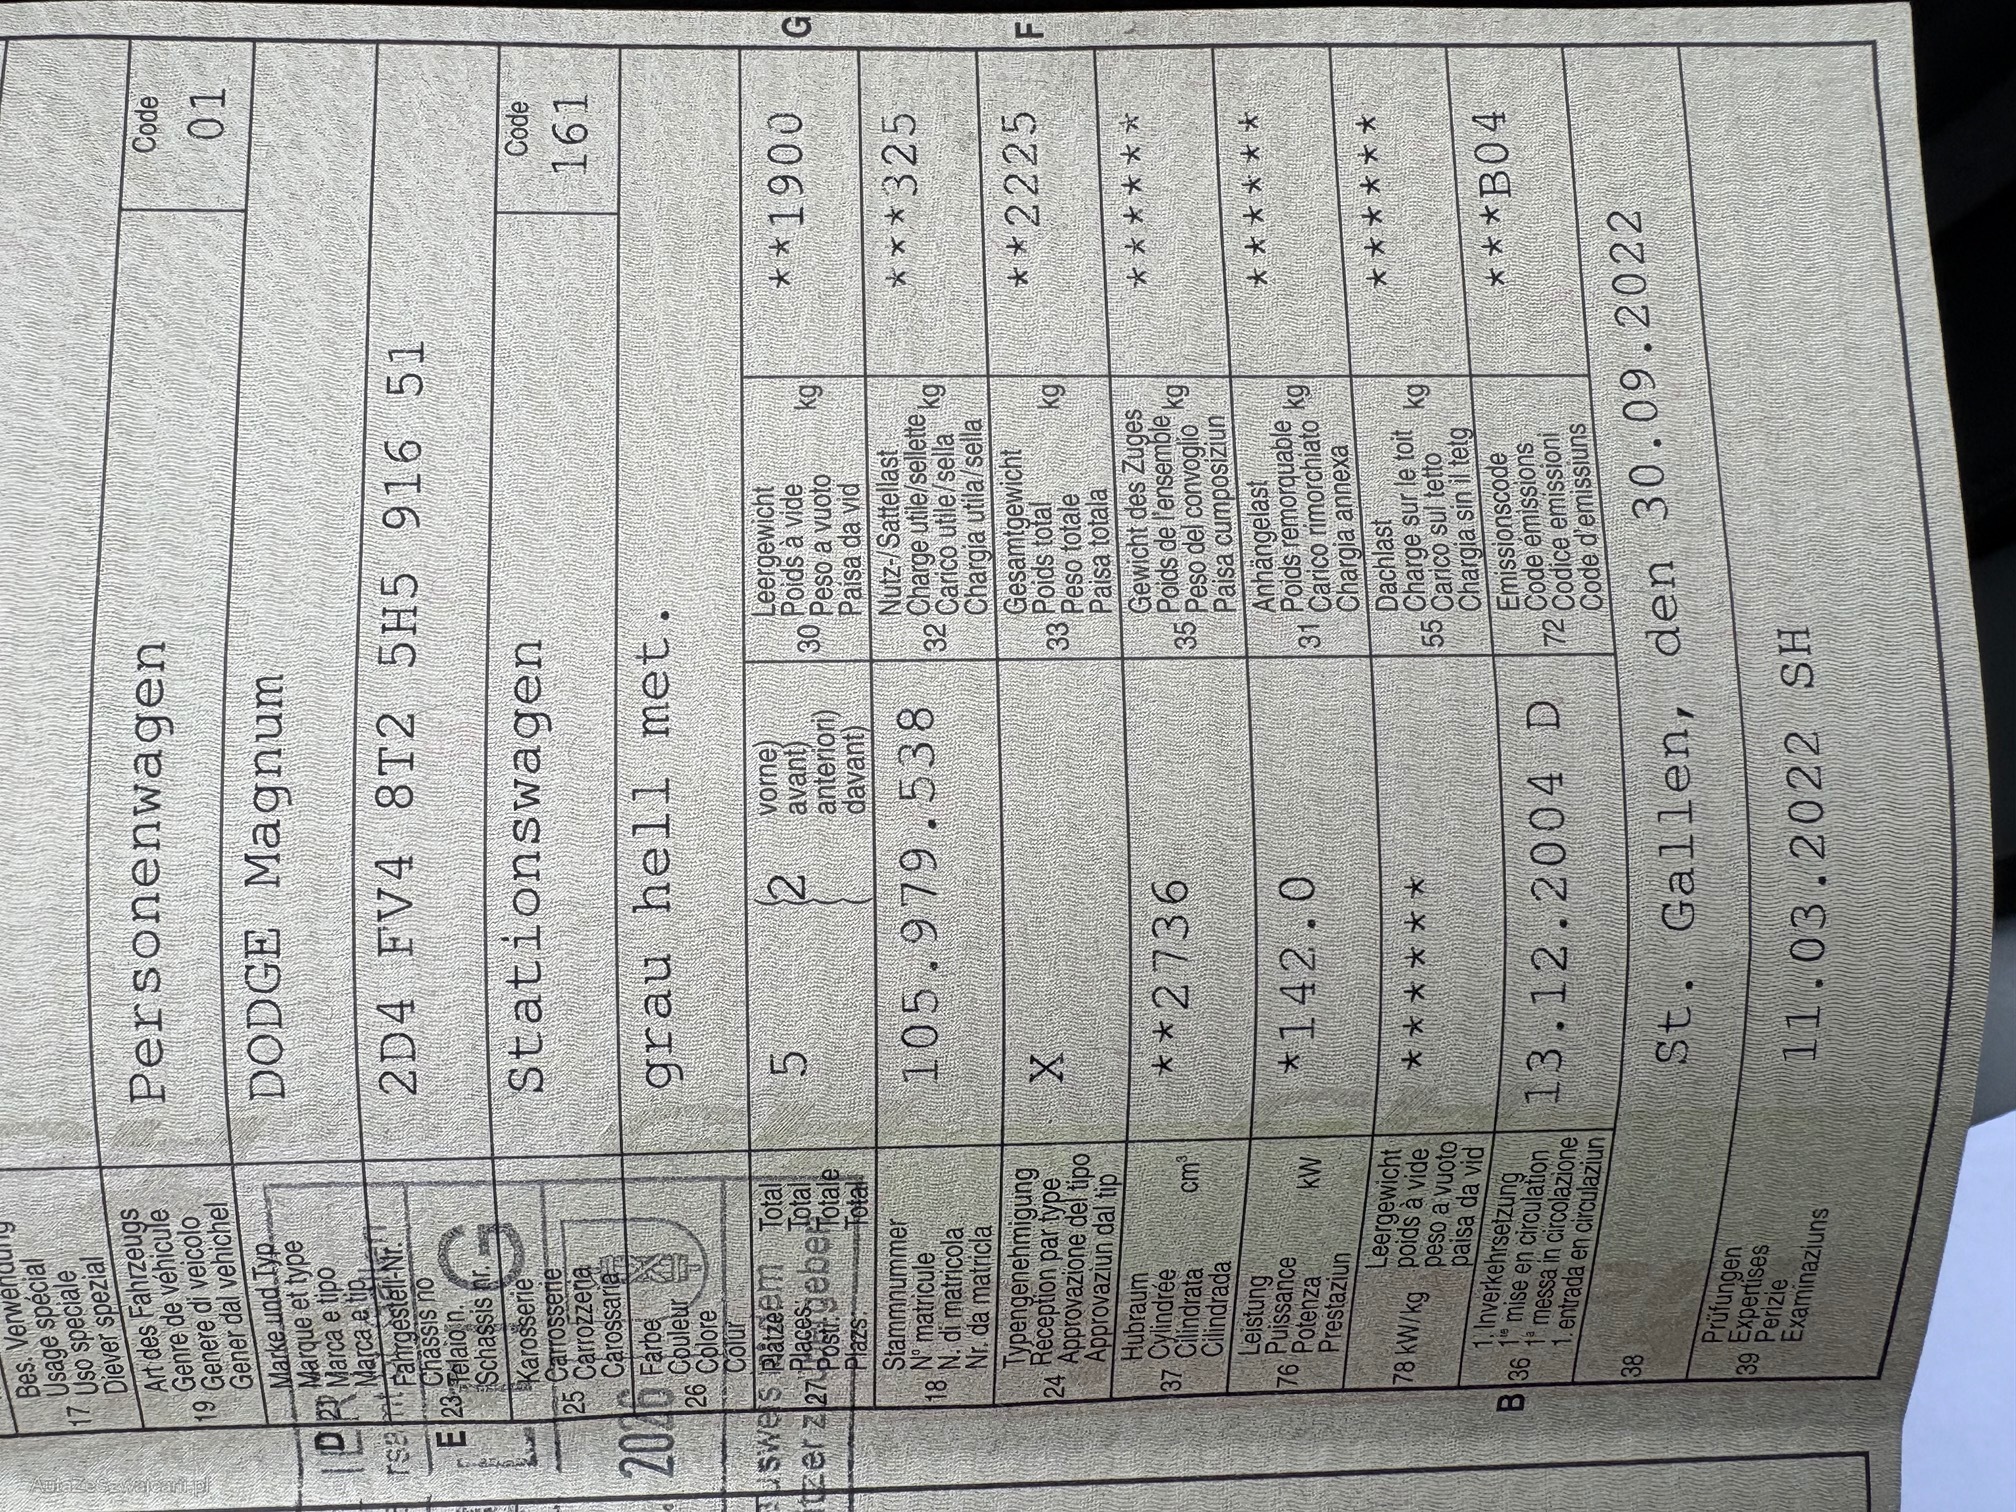 Bes. Verwendung
Usage spécial
17 Uso speciale
Diever spezial
Art des Fahrzeugs
Genre de véhicule
19 Genere di veicolo
Gener dal vehichel
Personenwagen
Code
01
Marke und Typ
Marque et type
D 21 Marca e tipo
Marca e tip
DODGE Magnum
Fahrgestell-Nr.
Châssis no
E 23 Telaio n.
Schassis nr.
2D4 FV4 8T2 5H5 916 51
Karosserie
Carrosserie
25 Carrozzeria
Carossaria
Stationswagen
Code
161
Farbe
Couleur
26 Colore
Colur
grau hell met.
2026
Plätze Total
Places Total
27 Posti Totale
Plazs: Total
5 2
vorne)
avant)
anteriori)
davant)
Leergewicht
30 Poids à vide kg
Peso a vuoto
Paisa da vid
**1900
G
Stammnummer
18 N° matricule
N. di matricola
Nr. da matricla
105.979.538
Nutz-/Sattellast
32 Charge utile/sellette kg
Carico utile/sella
Chargia utila/sella
***325
Typengenehmigung
24 Réception par type
Approvazione del tipo
Approvaziun dal tip
X
Gesamtgewicht
33 Poids total kg
Peso totale
Paisa totala
**2225
F
Hubraum
37 Cylindrée cm³
Cilindrata
Cilindrada
**2736
Gewicht des Zuges
Poids de l'ensemble
35 Peso del convoglio kg
Paisa cumposiziun
******
Leistung
76 Puissance kW
Potenza
Prestaziun
*142.0
Anhängelast
Poids remorquable
31 Carico rimorchiato kg
Chargia annexa
******
Leergewicht
78 kW/kg poids à vide
peso a vuoto
paisa da vid
******
Dachlast
Charge sur le toit
55 Carico sul tetto kg
Chargia sin il tetg
******
1. Inverkehrsetzung
B 36 1re mise en circulation
1a messa in circolazione
1. entrada en circulaziun
13.12.2004 D
Emissionscode
Code émissions
72 Codice emissioni
Code d'emissiuns
***B04
38
St. Gallen, den 30.09.2022
Prüfungen
39 Expertises
Perizie
Examinaziuns
11.03.2022 SH
AutaZeSzwajcarii.pl